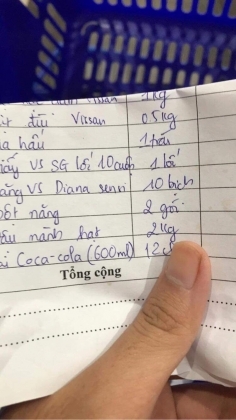 Vissan 1kg
đùi Vissan 0.5kg
hấu 1 trái
giấy VS SG lốc 10 cuộn 1 lốc
băng VS Diana sensi 10 bịch
bột năng 2 gói
mãnh hạt 2kg
Coca-cola (600ml) 12
Tổng cộng